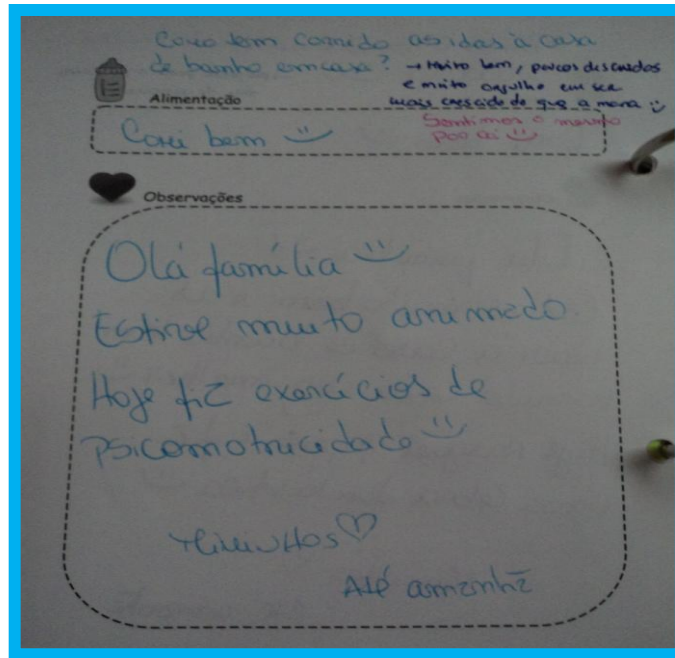 Como tem corrido as idas à casa
de banho em casa? → Muito bem, poucos descuidos
e muito orgulho em ser
mais crescido do que a mana :)
Alimentação
Sentimos o mesmo
por cá :)
Comi bem :)
Observações
Olá família :)
Estive muito animado.
Hoje fiz exercícios de
psicomotricidade :)
Miminhos ♡
Até amanhã